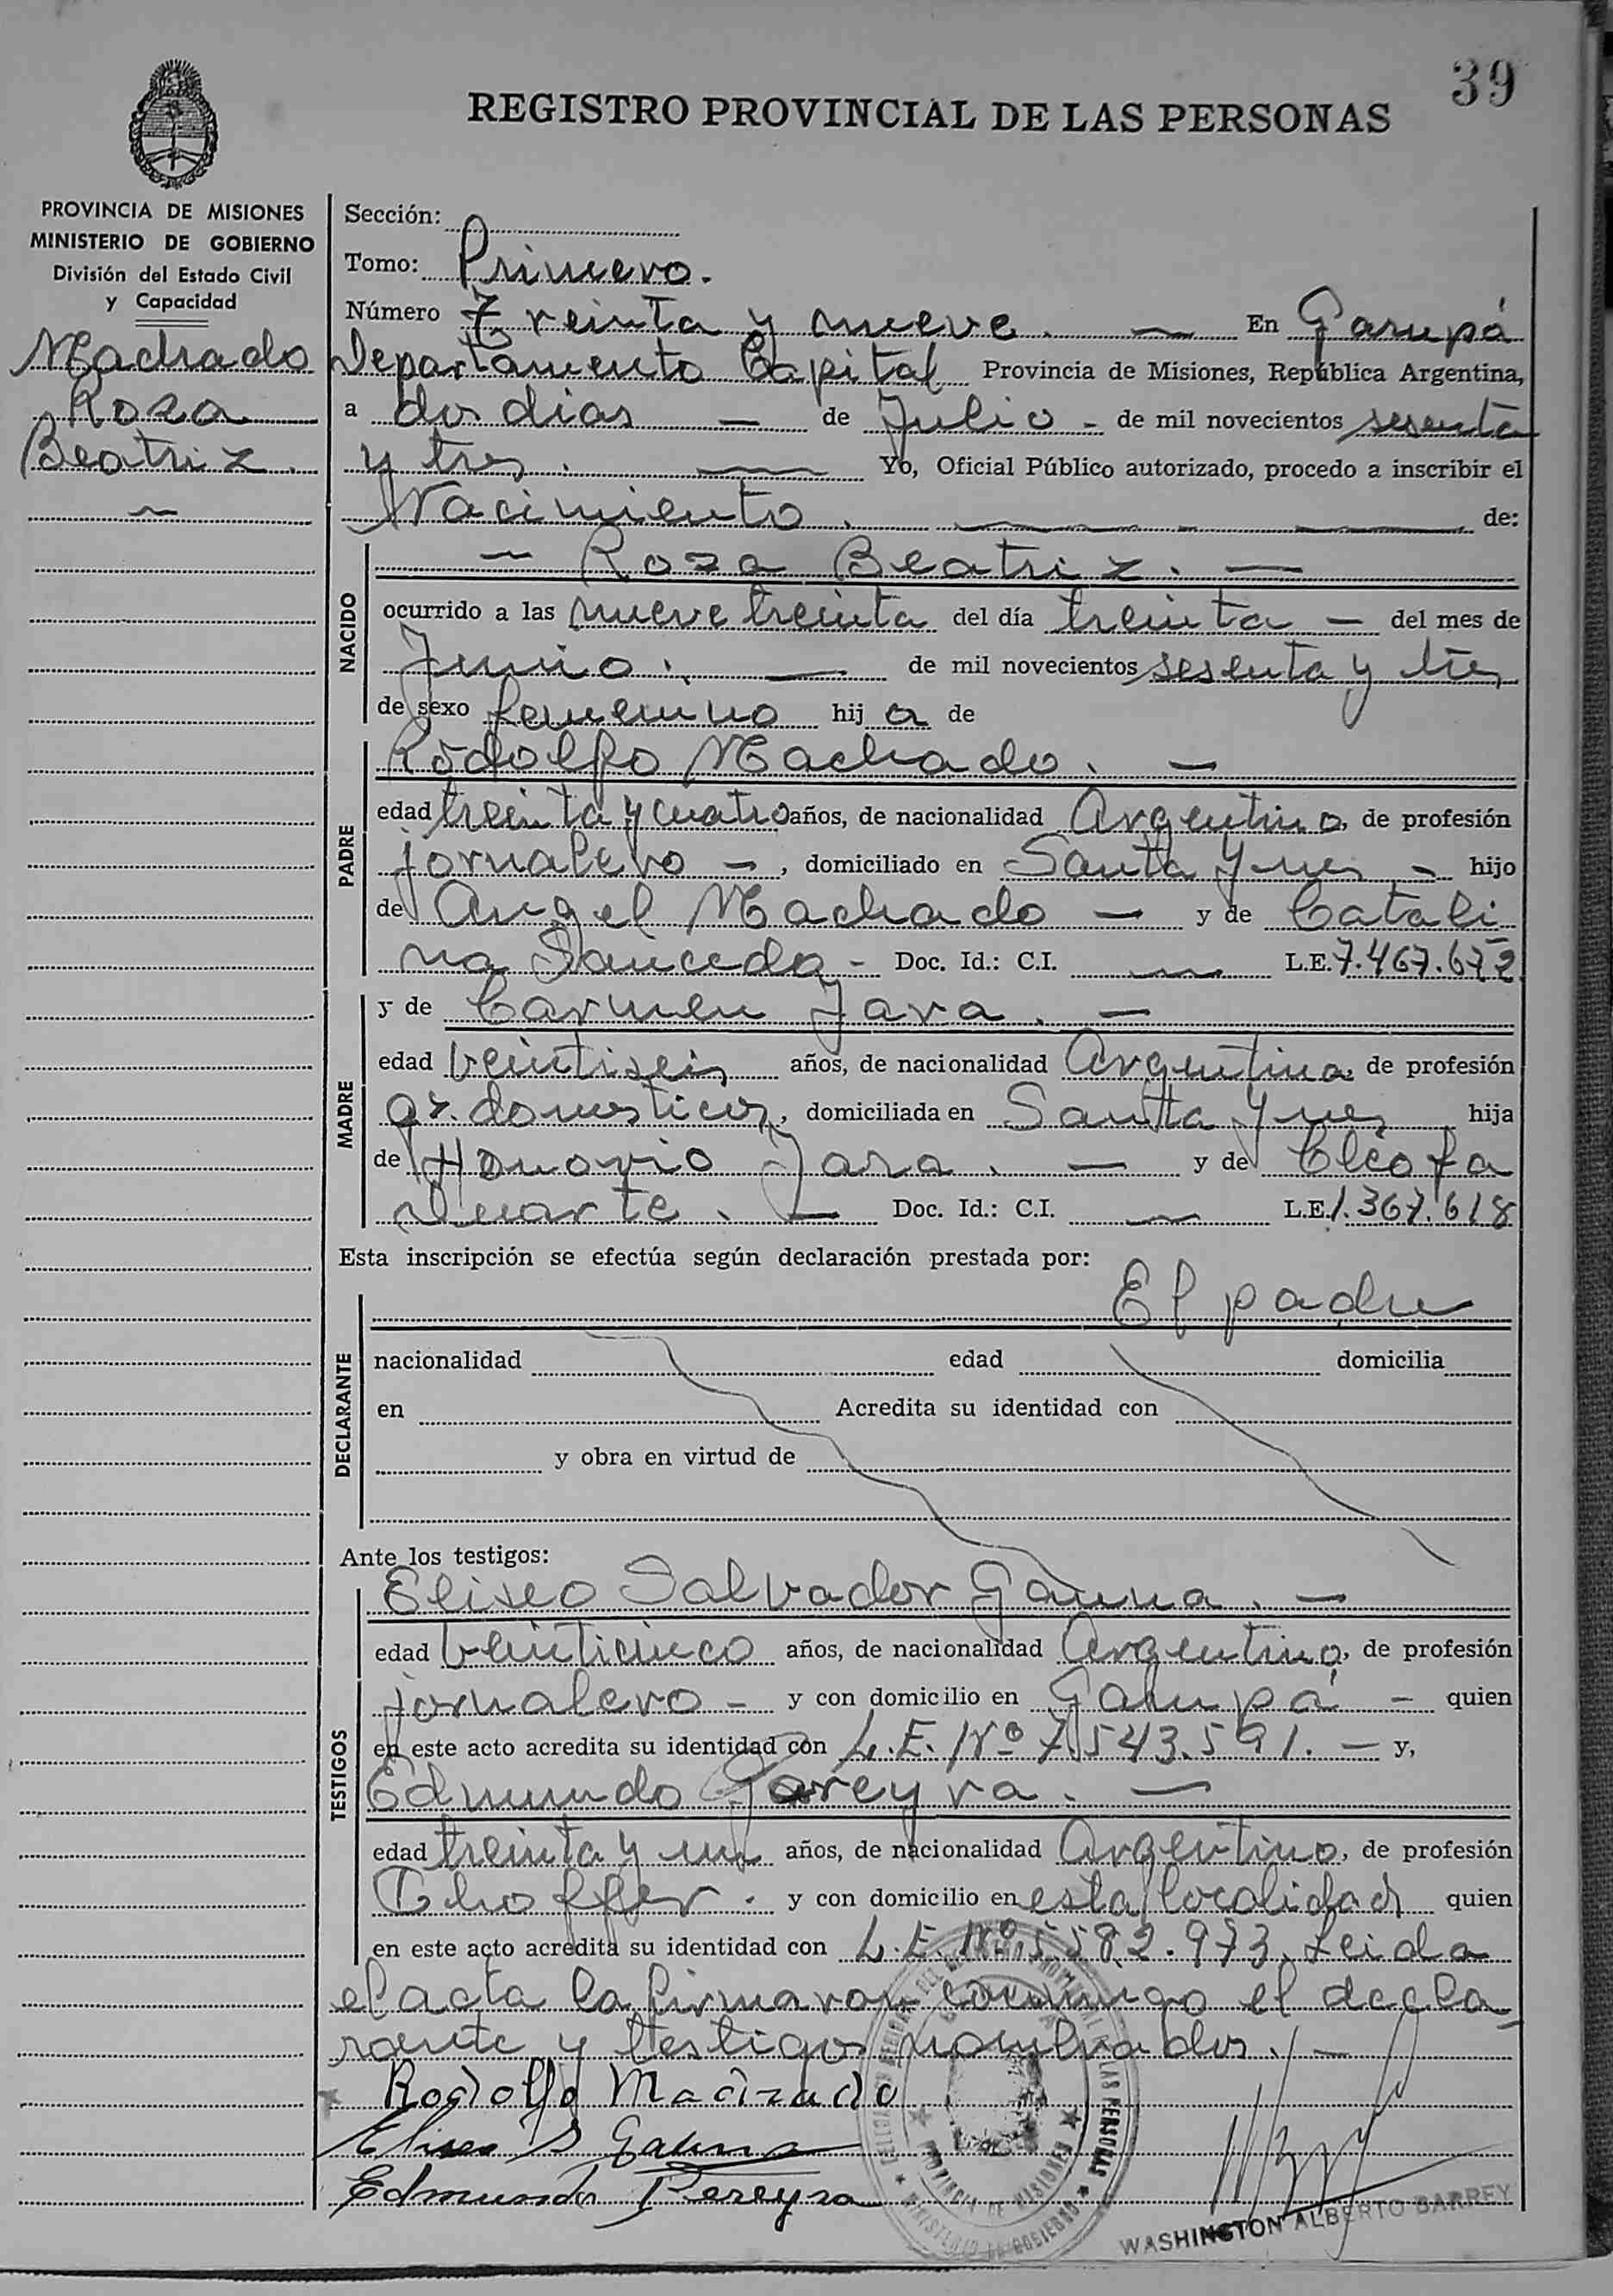 39
REGISTRO PROVINCIAL DE LAS PERSONAS
PROVINCIA DE MISIONES
MINISTERIO DE GOBIERNO
División del Estado Civil
y Capacidad
Machado
Rosa
Beatriz.
Sección:
Tomo: Primero.
Número Treinta y nueve. — En Garupá
Departamento Capital Provincia de Misiones, República Argentina,
a dos dias — de Julio - de mil novecientos sesenta
y tres. — Yo, Oficial Público autorizado, procedo a inscribir el
Nacimiento. — de:
NACIDO
— Rosa Beatriz. —
ocurrido a las nueve treinta del día treinta — del mes de
Junio. — de mil novecientos sesenta y tres
de sexo femenino hij a de
PADRE
Rodolfo Machado. —
edad treinta y cuatro años, de nacionalidad Argentino, de profesión
jornalero —, domiciliado en Santa Ynes — hijo
de Angel Machado — y de Catali
na Sauceda - Doc. Id.: C.I. — L.E. 7.467.672
MADRE
y de Carmen Jara. —
edad veintiseis años, de nacionalidad Argentina, de profesión
qz. domesticos, domiciliada en Santa Ynes hija
de Honorio Jara. — y de Cleofa
Duarte. — Doc. Id.: C.I. — L.E. 1.367.618
Esta inscripción se efectúa según declaración prestada por:
DECLARANTE
El padre
nacionalidad edad domicilia
en Acredita su identidad con
y obra en virtud de
Ante los testigos:
TESTIGOS
Eliseo Salvador Gauna. —
edad veinticinco años, de nacionalidad Argentino, de profesión
jornalero - y con domicilio en Garupá - quien
en este acto acredita su identidad con L.E. Nº 7.543.591. — y,
Edmundo Pereyra. —
edad treinta y un años, de nacionalidad Argentino, de profesión
Choffer. y con domicilio en esta localidad quien
en este acto acredita su identidad con L.E. Nº 5.582.973. Leida
el acta la firmaron conmigo el decla
rante y testigos nombrados. —
Rodolfo Machado
Eliseo S Gauna
Edmundo Pereyra
PROVINCIA DE MISIONES
MINISTERIO DE GOBIERNO
WASHINGTON ALBERTO BARREY